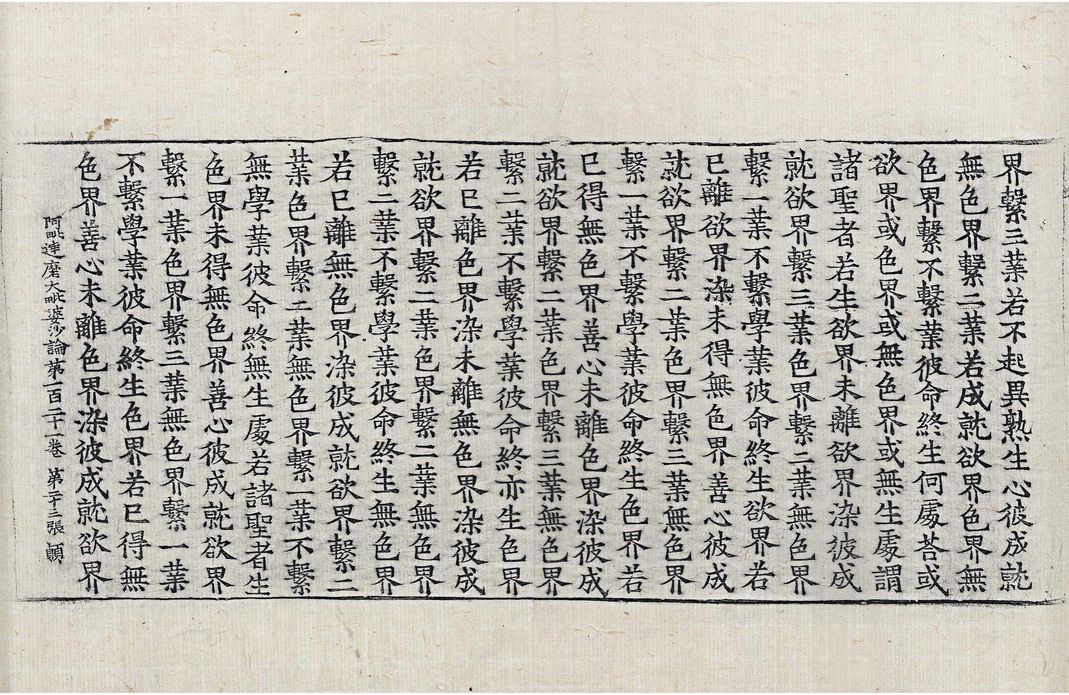 界繫三業若不起異熟生心彼成就
無色界繫二業若成就欲界色界無
色界繫不繫業彼命終生何處荅或
欲界或色界或無色界或無生處謂
諸聖者若生欲界未離欲界染彼成
就欲界繫三業色界繫二業無色界
繫一業不繫學業彼命終生欲界若
已離欲界染未得無色界善心彼成
就欲界繫二業色界繫三業無色界
繫一業不繫學業彼命終生色界若
已得無色界善心未離色界染彼成
就欲界繫二業色界繫三業無色界
繫二業不繫學業彼命終亦生色界
若已離色界染未離無色界染彼成
就欲界繫二業色界繫二業無色界
繫二業不繫學業彼命終生無色界
若已離無色界染彼成就欲界繫二
業色界繫二業無色界繫一業不繫
無學業彼命終無生處若諸聖者生
色界未得無色界善心彼成就欲界
繫一業色界繫三業無色界繫一業
不繫學業彼命終生色界若已得無
色界善心未離色界染彼成就欲界
阿毗達磨大毗婆沙論第一百二十一卷 第二十三張 顛